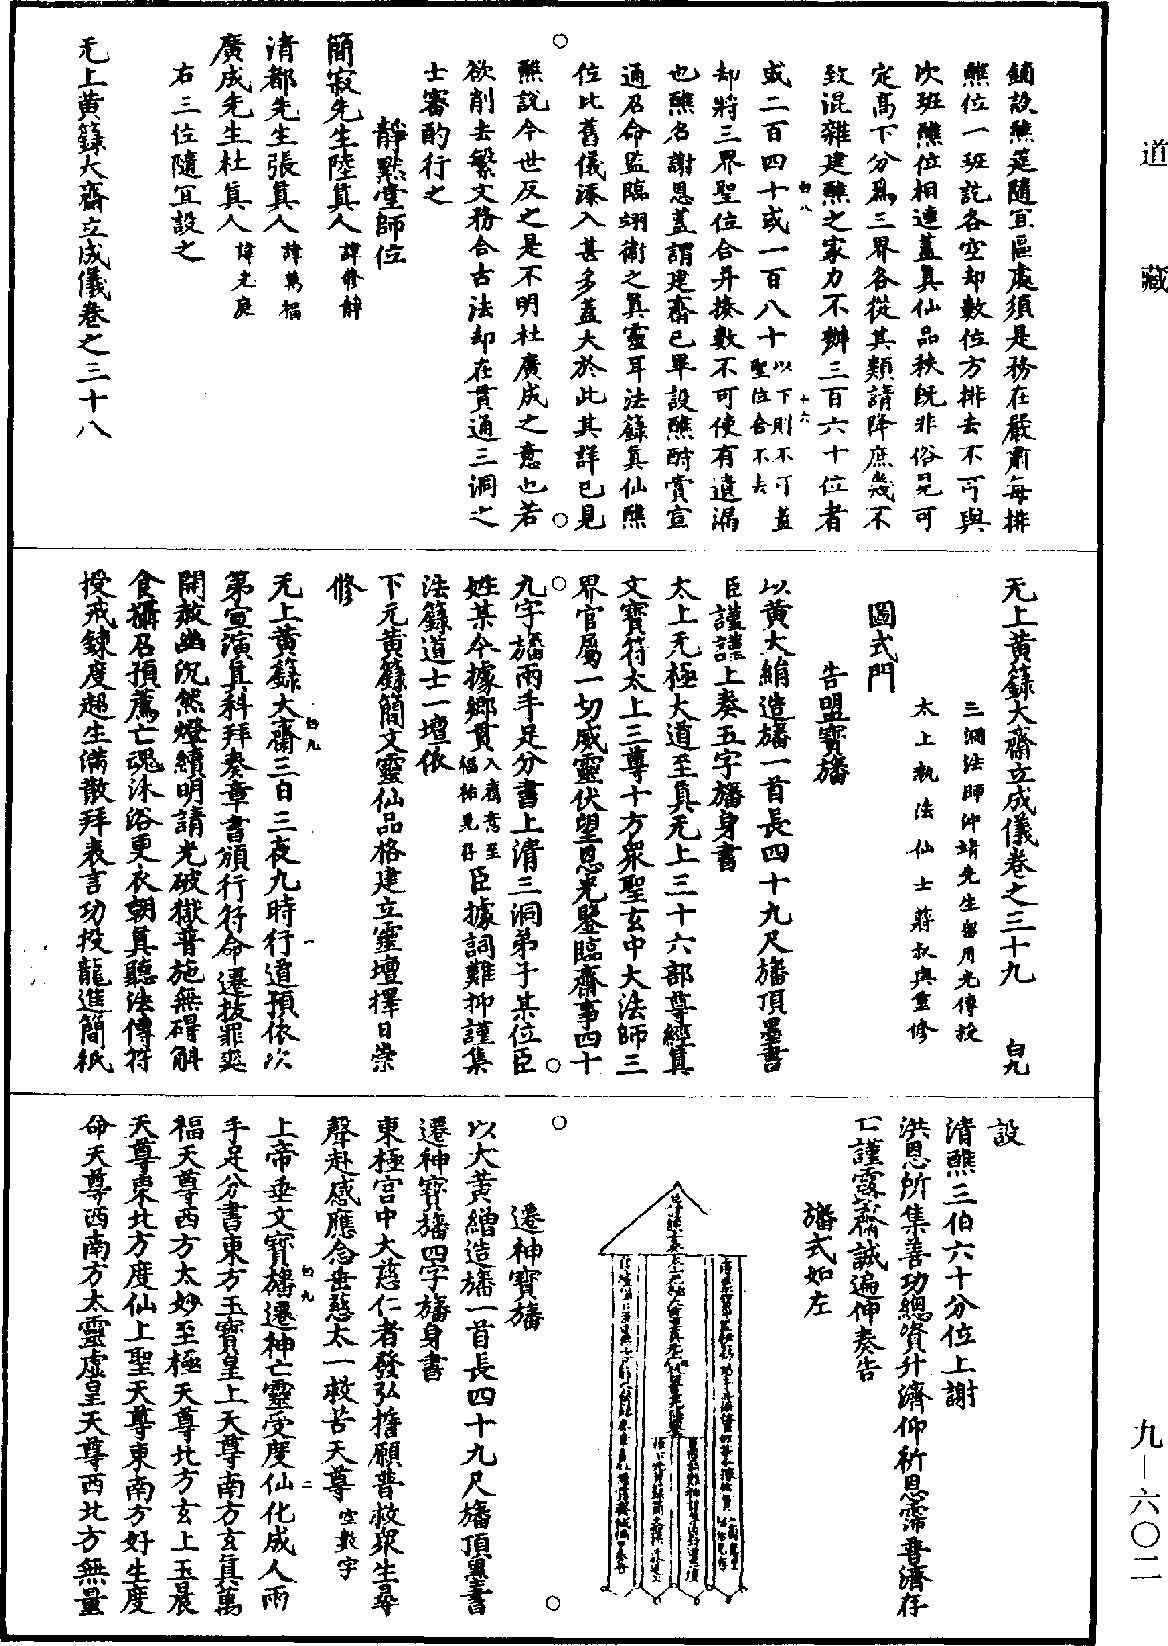 道藏
鋪設醮筵隨冝區處須是務在嚴肅每排
醮位一班訖各空却數位方排去不可與
次班醮位相連蓋真仙品秩旣非俗見可
定高下分爲三界各從其類請降庶幾不
致混雜建醮之家力不辦三百六十位者
或二百四十或一百八十以下則不可蓋聖位合不去
却將三界聖位合并揍數不可使有遺漏
也醮名謝恩蓋謂建齋已畢設醮酧賞宣
通召命監臨翊衛之真靈耳法籙真仙醮
位比舊儀添入甚多蓋大於此其詳已見
醮說今世反之是不明杜廣成之意也若
欲削去繁文務合古法却在貫通三洞之
士審酌行之
靜黙堂師位
簡寂先生陸真人諱修靜
清都先生張真人諱萬福
廣成先生杜真人諱光庭
右三位隨冝設之
无上黄籙大齋立成儀卷之三十八
无上黄籙大齋立成儀卷之三十九 白九
三洞法師沖靖先生留用光傳授
太上執法仙士蔣叔輿重修
圖式門
告盟寶旛
以黄大絹造旛一首長四十九尺旛頂墨書
臣謹謹上奏五字旛身書
太上无極大道至真无上三十六部尊經真
文寶符太上三尊十方衆聖玄中大法師三
界官屬一切威靈伏望恩光鑒臨齋事四十
九字旛兩手足分書上清三洞弟子某位臣
姓某今據鄉貫入齋意至福祐見存臣據詞難抑謹集
法籙道士一壇依
下元黄籙簡文靈仙品格建立靈壇擇日崇
修
无上黄籙大齋三日三夜九時行道預依次
第宣演真科拜奏章書頒行符命遷拔罪爽
開赦幽沉然燈續明請光破獄普施無碍斛
食攝召預薦亡魂沐浴更衣朝真聽法傳符
授戒鍊度超生滿散拜表言功投龍進簡祇
設
清醮三伯六十分位上謝
洪恩所集善功總資升濟仰祈恩霈普濟存
亡謹露齋誠遍伸奏告
旛式如左
遷神寶旛
以大黄繒造旛一首長四十九尺旛頂墨書
遷神寶旛四字旛身書
東極宫中大慈仁者發弘擔願普救衆生尋
聲赴感應念垂慈太一救苦天尊空數字
上帝垂文寶旛遷神亡靈受度仙化成人兩
手足分書東方玉寶皇上天尊南方玄真萬
福天尊西方太妙至極天尊北方玄上玉晨
天尊東北方度仙上聖天尊東南方好生度
命天尊西南方太靈虚皇天尊西北方無量
九—六〇二